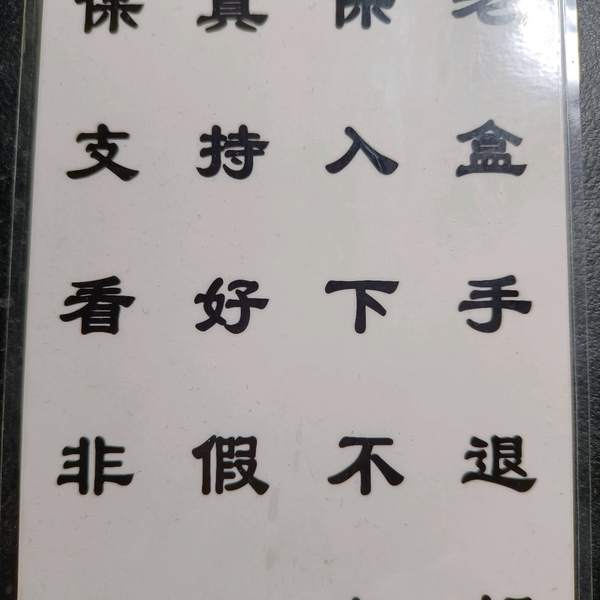 保真保老
支持入盒
看好下手
非假不退